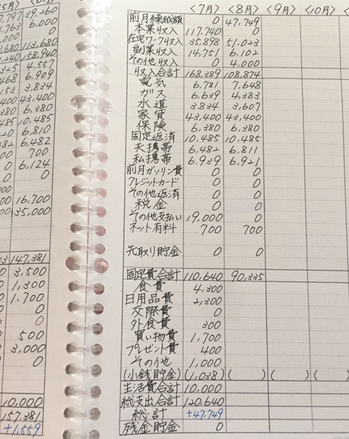 113.680
4.557
6.909
3.834
43.400
6.380
10.485
6.810
6.482
700
6.124
0
0
16.700
35.000
147.381
3.500
1.300
1.700
0
0
500
3.000
0
10.000
157.381
+1.559
<7月> <8月> <9月> <10月
前月繰越額 0 47.749
本業収入 117.740 0
在宅ワーク収入 35.898 51.023
副業収入 14.751 6.102
その他収入 0 4.000
収入合計 168.389 108.874
電気 6.781 7.648
ガス 6.639 4.383
水道 3.834 3.607
家賃 43.400 43.400
保険 6.380 6.380
固定返済 10.485 10.485
夫携帯 6.482 6.811
私携帯 6.939 6.921
前月ガソリン費 0 0
クレジットカード 0 0
その他返済 0 0
税金 0 0
その他支払い 19.000 0
ネット有料 700 700
先取り貯金 0 0
固定費合計 110.640 90.335
食費 4.300
日用品費 2.300
交際費 0
外食費 300
買い物費 1.700
プレゼント費 400
その他 1.000
(小銭貯金) (1.038) ( ) ( ) (
生活費合計 10.000
総支出合計 120.640
総計 +47.749
残金貯金 0